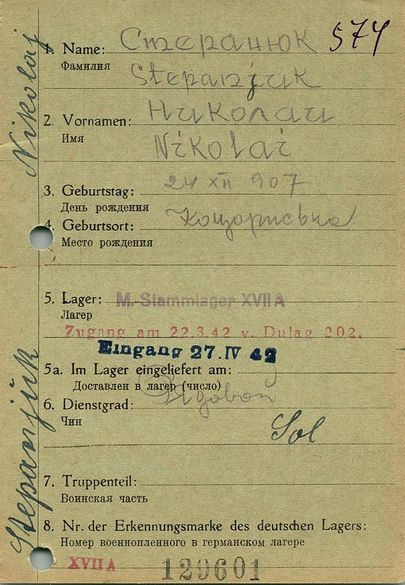 1. Name: Степанюк 574
Фамилия Stepanjuk
2. Vornamen: Николай
Имя Nikolai
3. Geburtstag: 24 XII 907
День рождения
4. Geburtsort:
Место рождения
5. Lager: M.-Stammlager XVII A
Лагер
Zugang am 22.3.42 v. Dulag 202.
Eingang 27. IV 42
5a. Im Lager eingeliefert am:
Доставлен в лагер (число)
6. Dienstgrad:
Чин Sol
7. Truppenteil:
Воинская часть
8. Nr. der Erkennungsmarke des deutschen Lagers:
Номер военнопленного в германском лагере
XVII A 129601
Stepanjuk Nikolaj